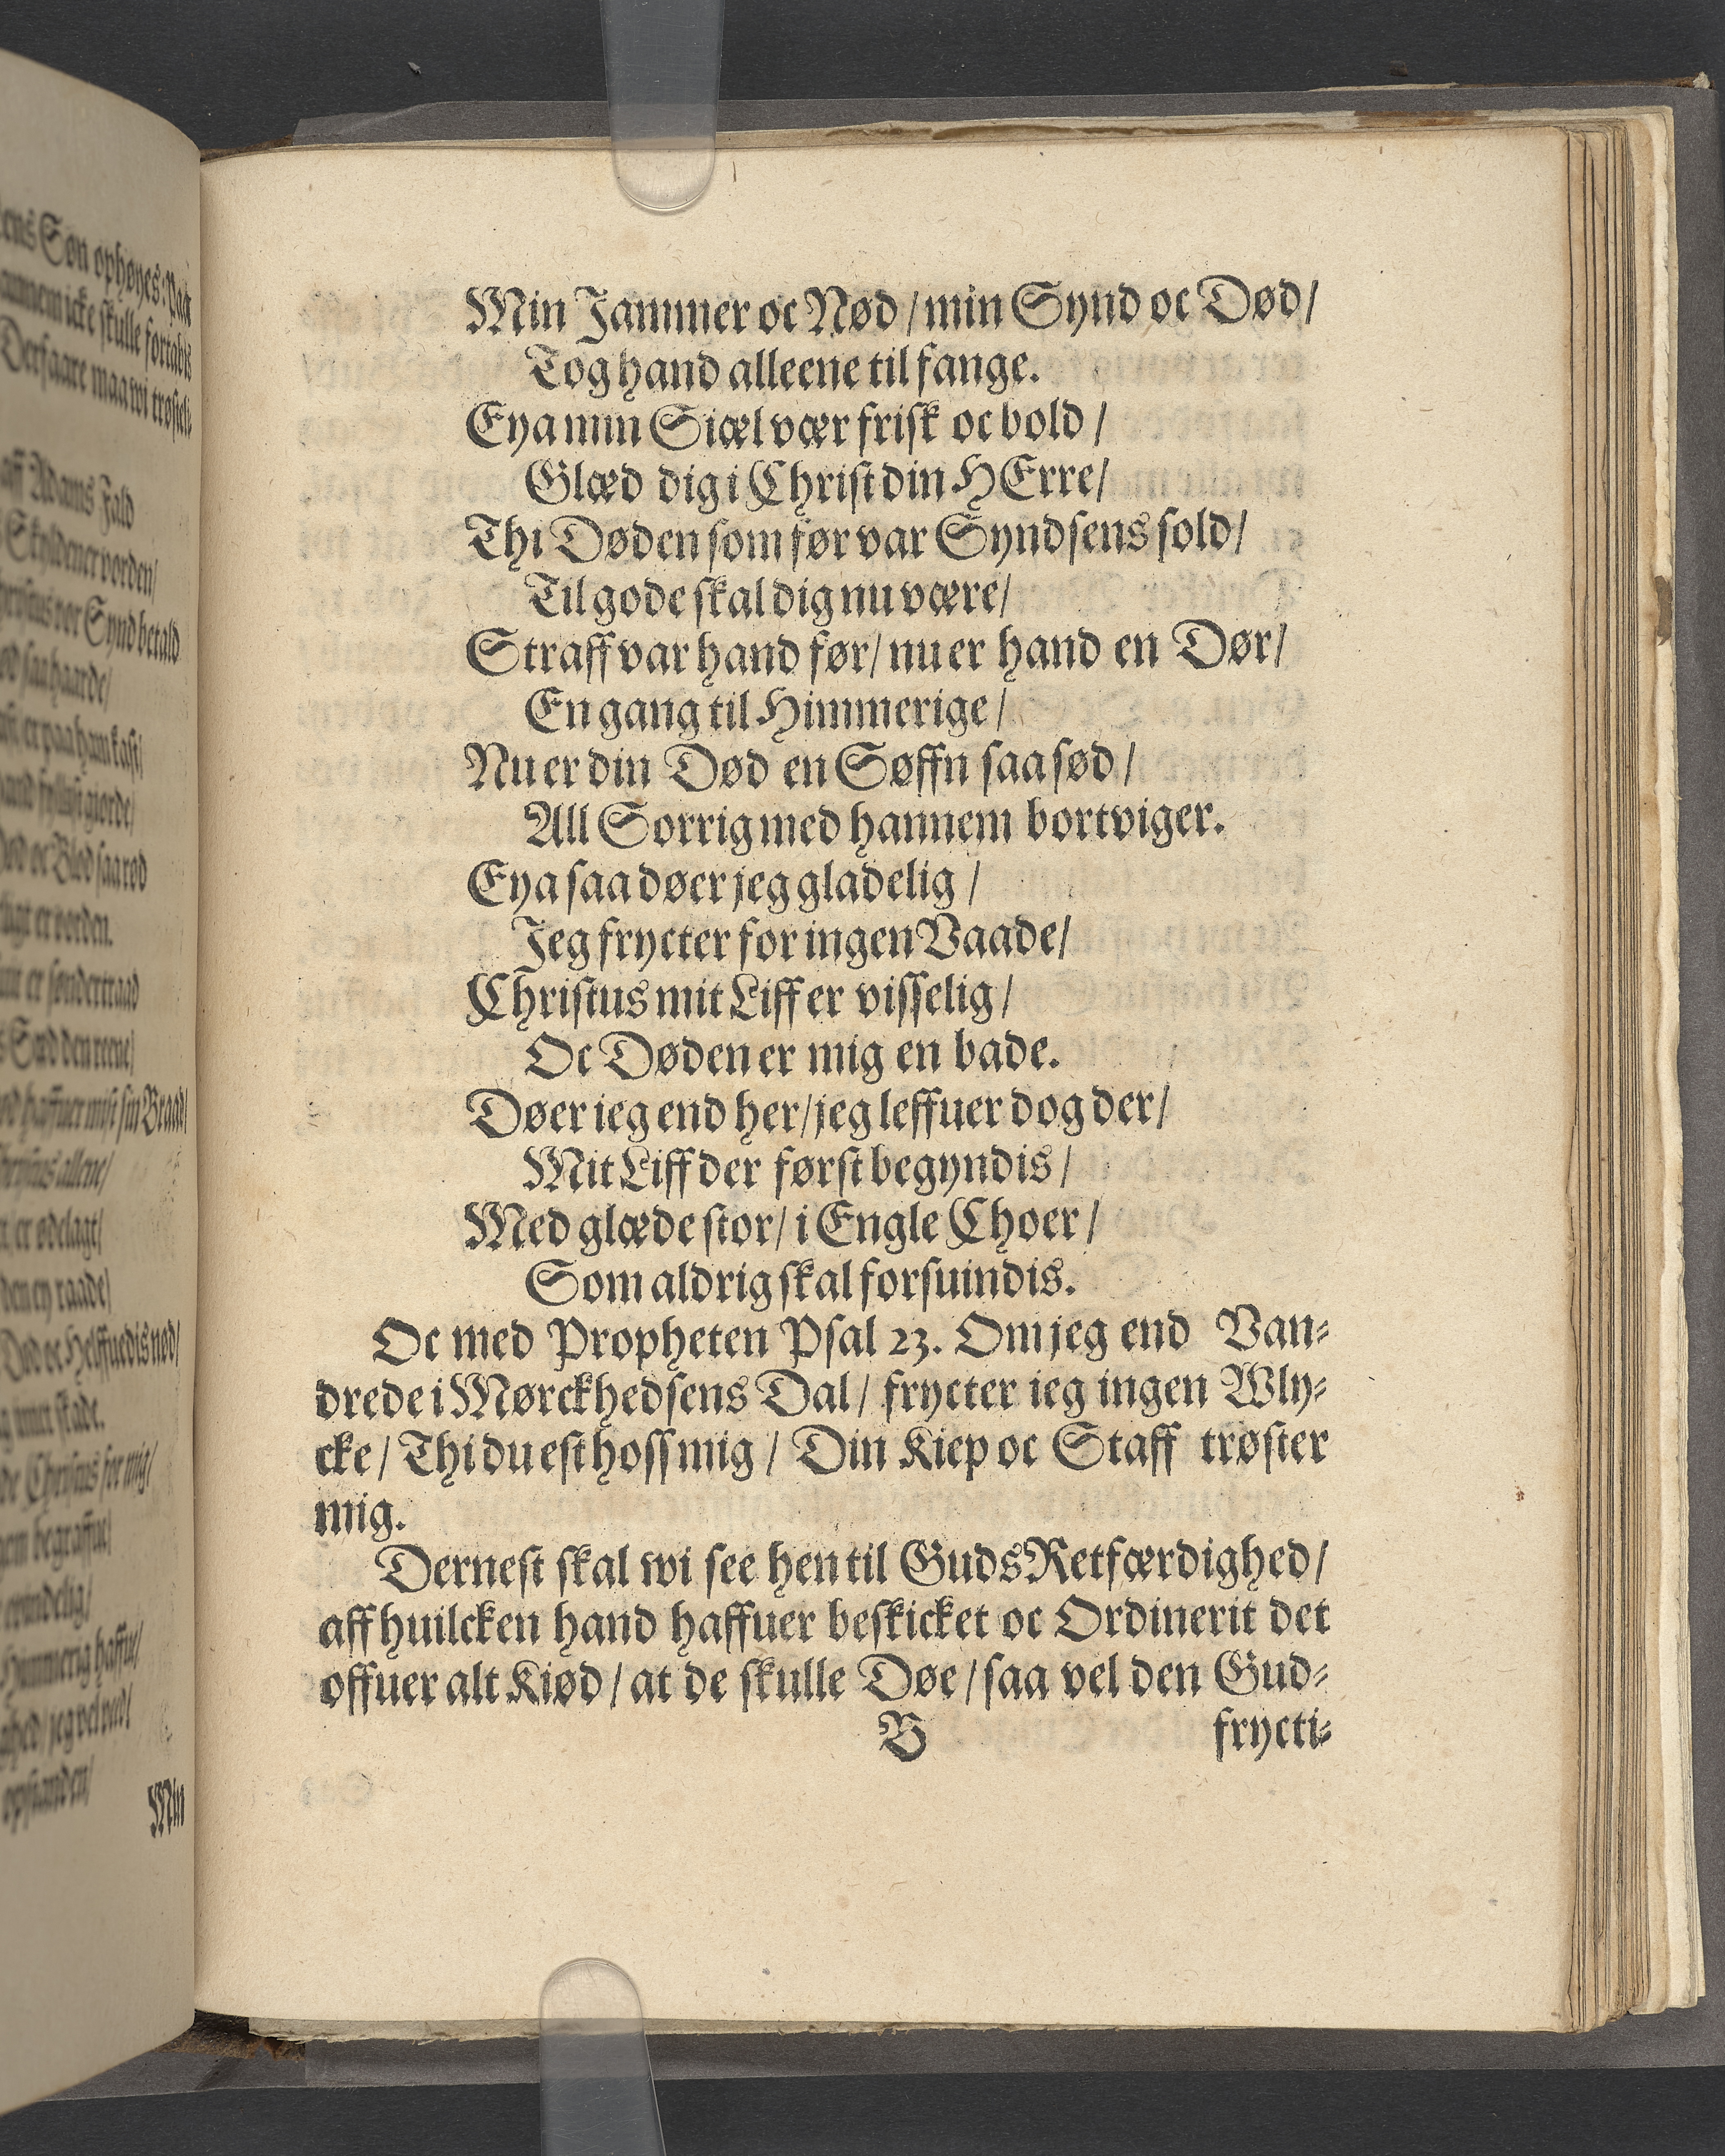 Min Jammer oc Nød / min Synd oc Død /
Tog hand alleene til fange.
Eya min Siæl vær frisk oc bold /
Glæd dig i Christ din HErre /
Thi Døden som før var Syndsens sold /
Til gode skal dig nu være /
Straff var hand før / nu er hand en Dør /
En gang til Himmerige /
Nu er din Død en Søffn saa sød /
All Sorrig med hannem bortviger.
Eya saa døer jeg gladelig /
Jeg frycter for ingen Vaade /
Christus mit Liff er visselig /
Oc Døden er mig en bade.
Døer ieg end her / jeg leffuer dog der /
Mit Liff der først begyndis /
Med glæde stor / i Engle Choer /
Som aldrig skal forsuindis.
Oc med Propheten Psal 23. Om jeg end Van-
drede i Mørckhedsens Dal / frycter ieg ingen Wly-
cke / Thi du est hoss mig / Din Kiep oc Staff trøster
mig.
Dernest skal wi see hen til Guds Retfærdighed /
aff huilcken hand haffuer beskicket oc Ordinerit det
offuer alt Kiød / at de skulle Døe / saa vel den Gud-
B frycti-
ens Søn ophøyes. Paa
skulle fortabis
Derfaare maa wi
aff Adams Fald
vor Synd betald
er søndertraad
er ødelagt /
Christus for mig /
Min